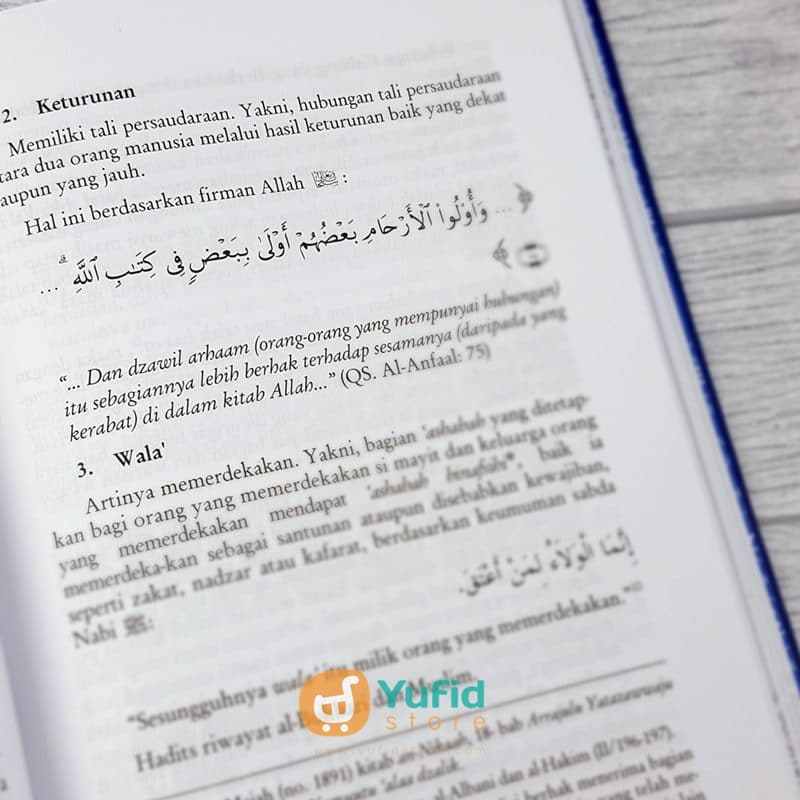 2. Keturunan
Memiliki tali persaudaraan. Yakni, hubungan tali persaudaraan
tara dua orang manusia melalui hasil keturunan baik yang dekat
aupun yang jauh.
Hal ini berdasarkan firman Allah ﷻ :
﴿ ... وَأُوْلُواْ ٱلْأَرْحَامِ بَعْضُهُمْ أَوْلَىٰ بِبَعْضٍ فِى كِتَـٰبِ ٱللَّهِ ۗ ...
﴾
“... Dan dzawil arhaam (orang-orang yang mempunyai hubungan)
itu sebagiannya lebih berhak terhadap sesamanya (daripada yang
kerabat) di dalam kitab Allah...” (QS. Al-Anfaal: 75)
3. Wala'
Artinya memerdekakan. Yakni, bagian 'ashabah yang ditetap-
kan bagi orang yang memerdekakan si mayit dan keluarga orang
yang memerdekakan mendapat 'ashabah binafsih*, baik ia
memerdeka-kan sebagai santunan ataupun disebabkan kewajiban,
seperti zakat, nadzar atau kafarat, berdasarkan keumuman sabda
Nabi ﷺ:
إِنَّمَا الْوَلَاءُ لِمَنْ أَعْتَقَ.
“Sesungguhnya wala' itu milik orang yang memerdekakan.”
Hadits riwayat dan Muslim.
Yufid
store
(no. 1891) kitab an-Nikaah, 18. bab
al-Albani dan al-Hakim (II/196-197).
berhak menerima bagian
yang telah me-
lain